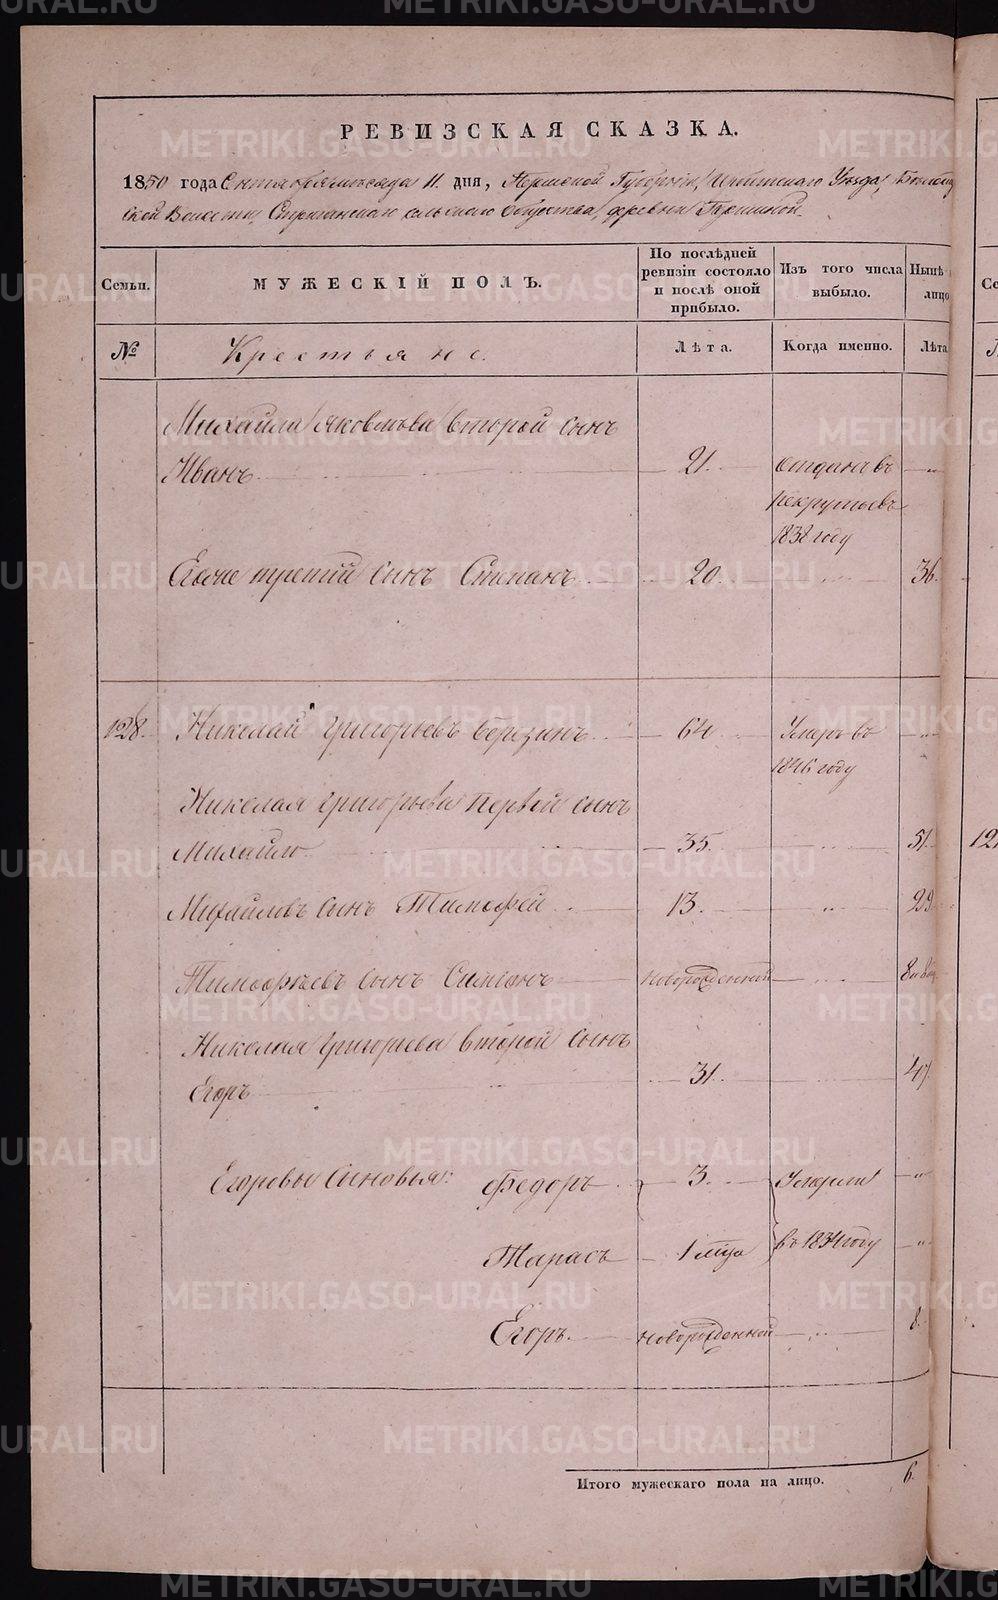 РЕВИЗСКАЯ СКАЗКА.
1850 года Сентября месяца 11. дня, Пермской Губерніи, Ирбитскаго Уѣзда,
ской Волости, Стриганскаго сельскаго Общества, деревни
Семьи.
МУЖЕСКІЙ ПОЛЪ.
По послѣдней ревизіи состояло и послѣ оной прибыло.
Изъ того числа выбыло.
Нынѣ лицо
№
Крестьяне.
Лѣта.
Когда именно.
Лѣта
Михайла Яковлева второй сынъ
Иванъ 21. отданъ въ "
рекруты въ
1838 году
Его же третій сынъ Степанъ 20. 36.
128. Николай Григорьевъ Березинъ 64 Умеръ въ "
1846 году
Николая Григорьева первой сынъ
Михайло 35. " 51.
Михайловъ сынъ Тимофей 13. " 29.
Тимофѣевъ сынъ Симіонъ новорожденной "
Николая Григорьева второй сынъ
Егоръ 31. 47.
Егоровы Сыновья: Федоръ 3. Умерли "
Тарасъ 1 мца въ 1834 году "
Егоръ. новорожденной " 8.
Итого мужескаго пола на лицо. 6.
METRIKI.GASO-URAL.RU